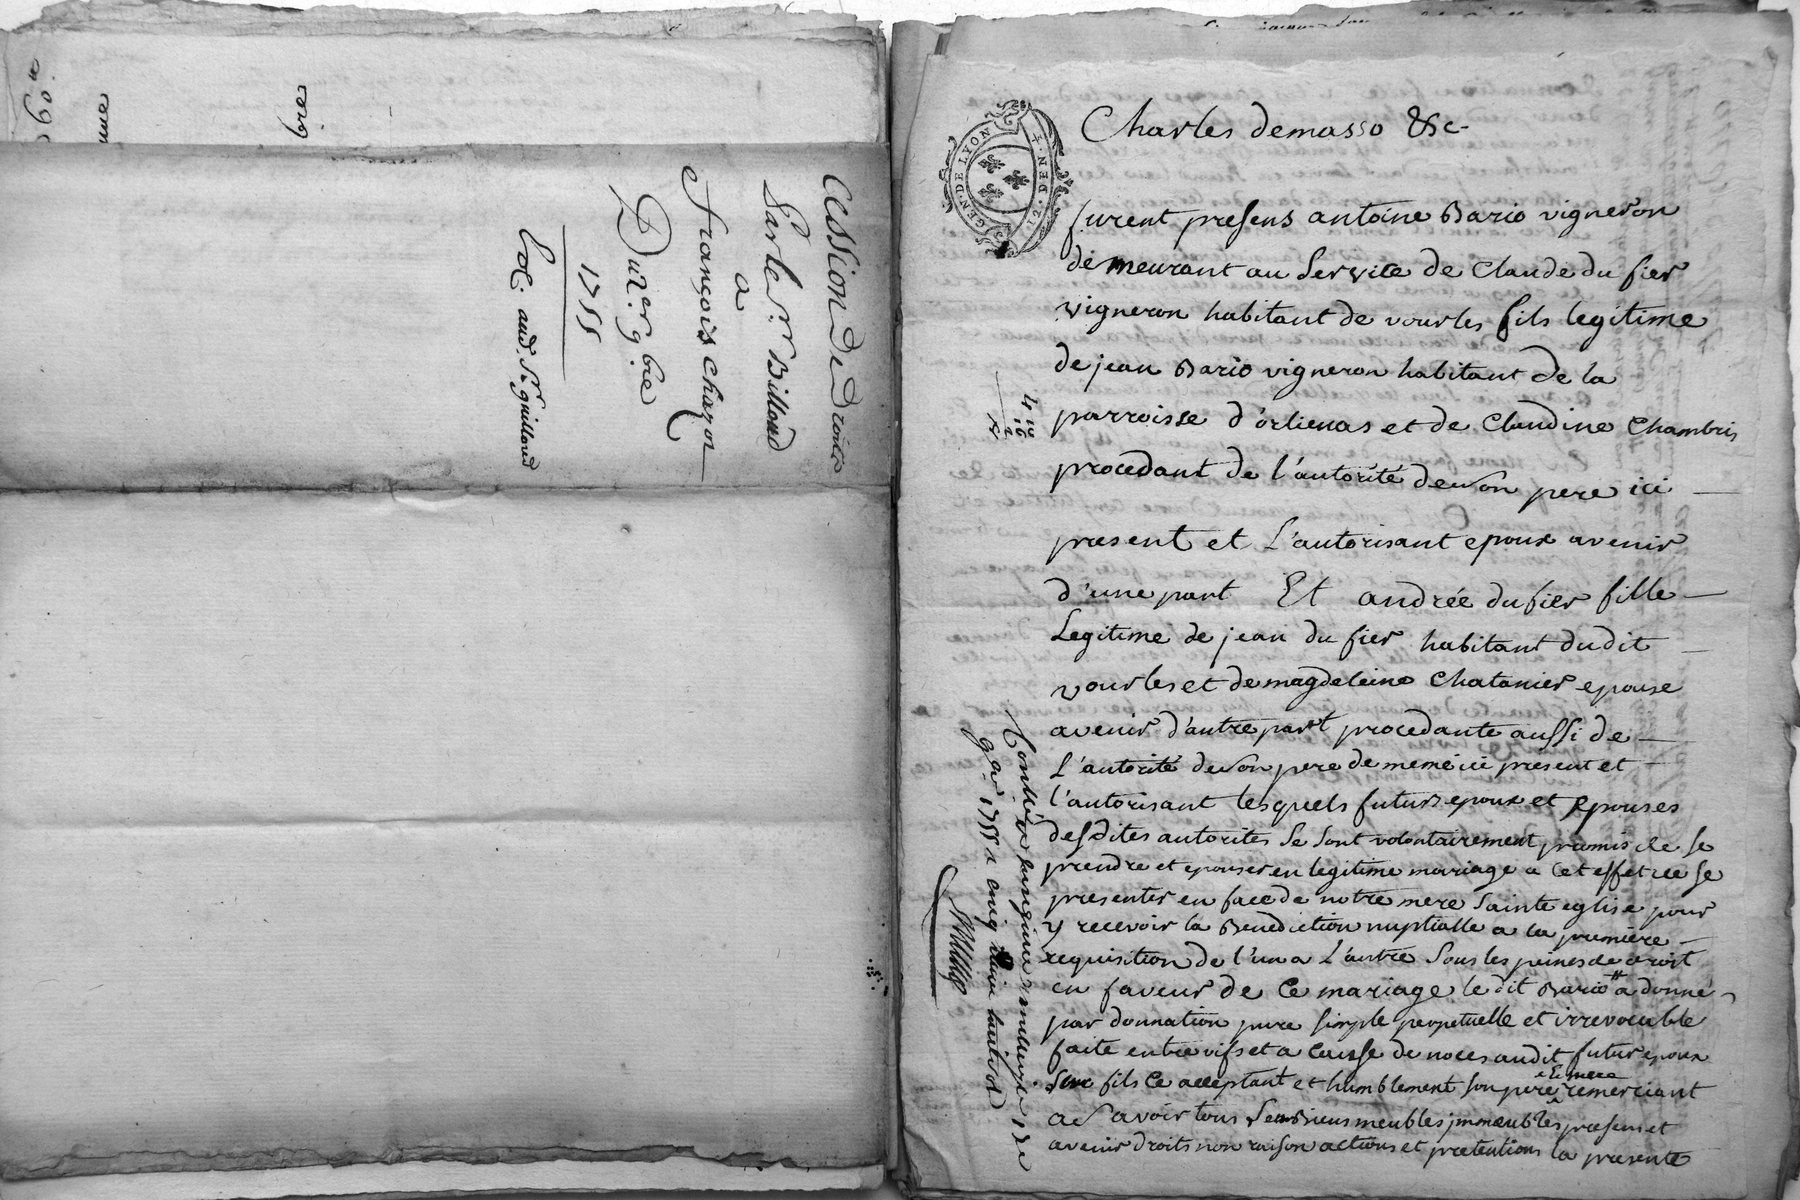 Cession de droits
Par le Sr. Billoud
a
françois chazot
Du 12e. 9bre
1755
aud. Sr. guilloud
GEN. DE LYON
12. DEN. 4
Charles demasso &c
furent presens antoine Bario vigneron
demeurant au Service de Claude du fier
vigneron habitant de vourles fils legitime
de jean Bario vigneron habitant de la
parroisse d'orlienas et de Claudine Chambris
procedant de l'autorité de son pere ici
present et L'autorisant epoux avenir
d'une part Et andrée du fier fille
Legitime de jean du fier habitant dudit
vourles et de magdeleine Chatanier epouse
avenir d'autre part procedante aussi de
L'autorité de son pere de meme ici present et
l'autorisant lesquels futurs epoux et epouses
desdites autorites Se Sont volontairement promis de se
prendre et epouser en legitime mariage a Cet effet de se
presenter en face de notre mere Sainte eglise pour
y recevoir la Benediction nuptialle a la premiere
requisition de l'un a L'autre Sous les peines de droit
en faveur de Ce mariage le dit Bario a donné
par donnation pure simple perpetuelle et irrevocable
faite entre vifs et a Cause de noces audit futur epoux
Son fils Ce acceptant et humblement son pere et mere remerciant
a Savoir tous Ses Biens meubles immeubles presens et
avenir droits nom raison actions et pretentions la presente
Contrôlé
9bre 1755